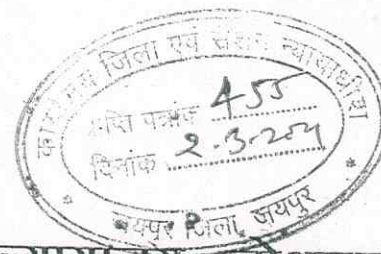 कार्यालय जिला एवं सेशन न्यायाधीश
प्राप्ति पत्रांक 455
दिनांक 2.3.2021
जयपुर जिला, जयपुर